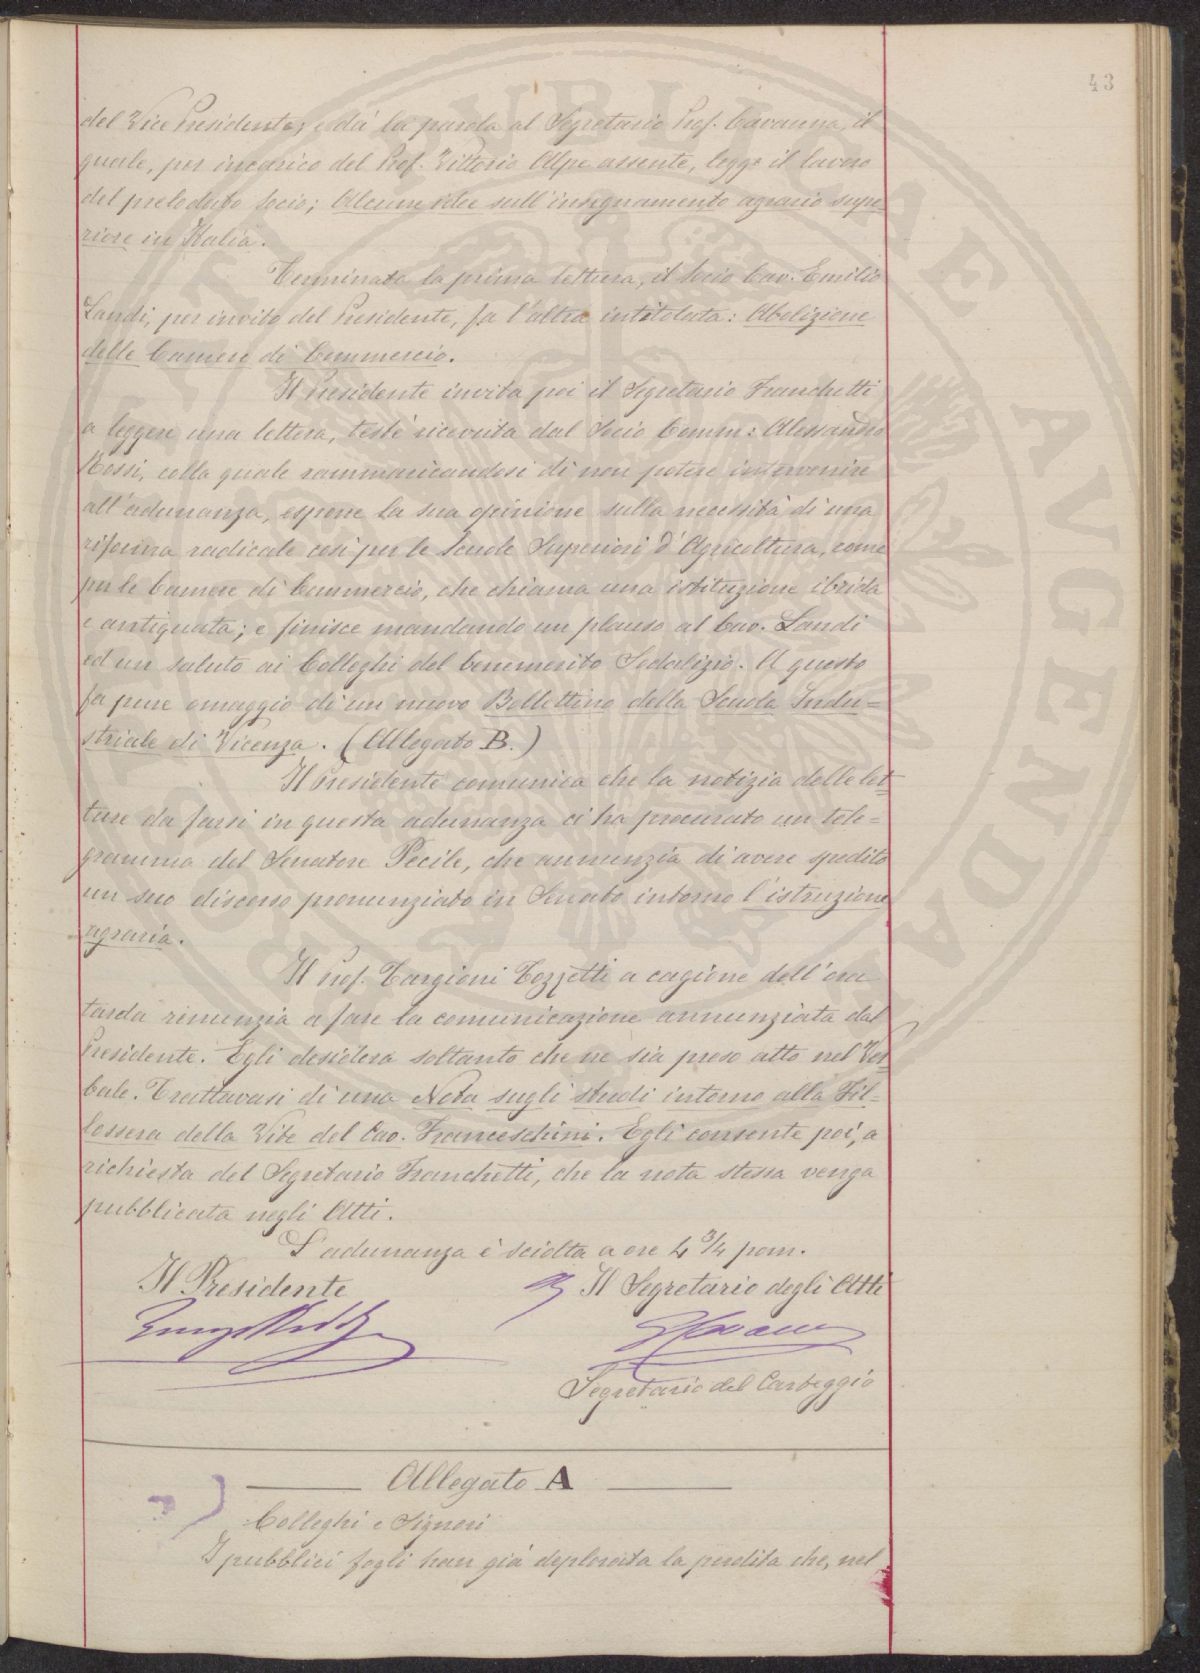 43
del Vice Presidente; e dà la parola al Segretario Prof. Cavanna, il
quale, per incarico del Prof. Vittorio Alpe assente, legge il lavoro
del prelodato Socio; Alcune idee sull'insegnamento agrario supe-
riore in Italia.
Terminata la prima lettura, il Socio Cav. Emilio
Landi, per invito del Presidente, fa l'altra intitolata: Abolizione
delle Camere di Commercio.
Il Presidente invita poi il Segretario Franchetti
a leggere una lettera, testè ricevuta dal Socio Comm: Alessandro
Rossi, colla quale rammaricandosi di non potere intervenire
all'adunanza, espone la sua opinione sulla necessità di una
riforma radicale così per le Scuole Superiori d'Agricoltura, come
per le Camere di Commercio, che chiama una istituzione ibrida
e antiquata; e finisce mandando un plauso al Cav. Landi
ed un saluto ai Colleghi del benemerito Sodalizio. A questo
fa pure omaggio di un nuovo Bollettino della Scuola Indu=
striale di Vicenza. (Allegato B.)
Il Presidente comunica che la notizia delle let-
ture da farsi in questa adunanza ci ha procurato un tele=
gramma del Senatore Pecile, che annunzia di avere spedito
un suo discorso pronunziato in Senato intorno l'istruzione
agraria.
Il Prof. Targioni Tozzetti a cagione dell'ora
tarda rinunzia a fare la comunicazione annunziata dal
Presidente. Egli desidera soltanto che ne sia preso atto nel Ver-
bale. Trattavasi di una Nota sugli studi intorno alla Fil-
lossera della Vite del Cav. Franceschini. Egli consente poi, a
richiesta del Segretario Franchetti, che la nota stessa venga
pubblicata negli Atti.
L'adunanza è sciolta a ore 4 3/4 pom.
Il Presidente Il Segretario degli Atti
Segretario del Carteggio
Allegato A
Colleghi e Signori
I pubblici fogli han già deplorata la perdita che, nel